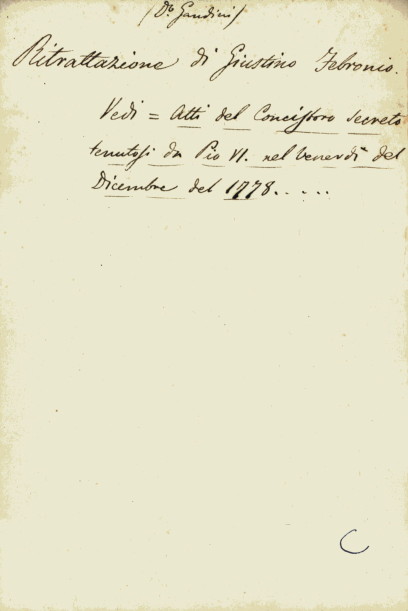 (Dr. Gandini)
Ritrattazione di Giustino Febronio.
Vedi = Atti del Concistoro secreto
tenutosi da Pio VI. nel venerdì del
Dicembre del 1778. . . . .
C